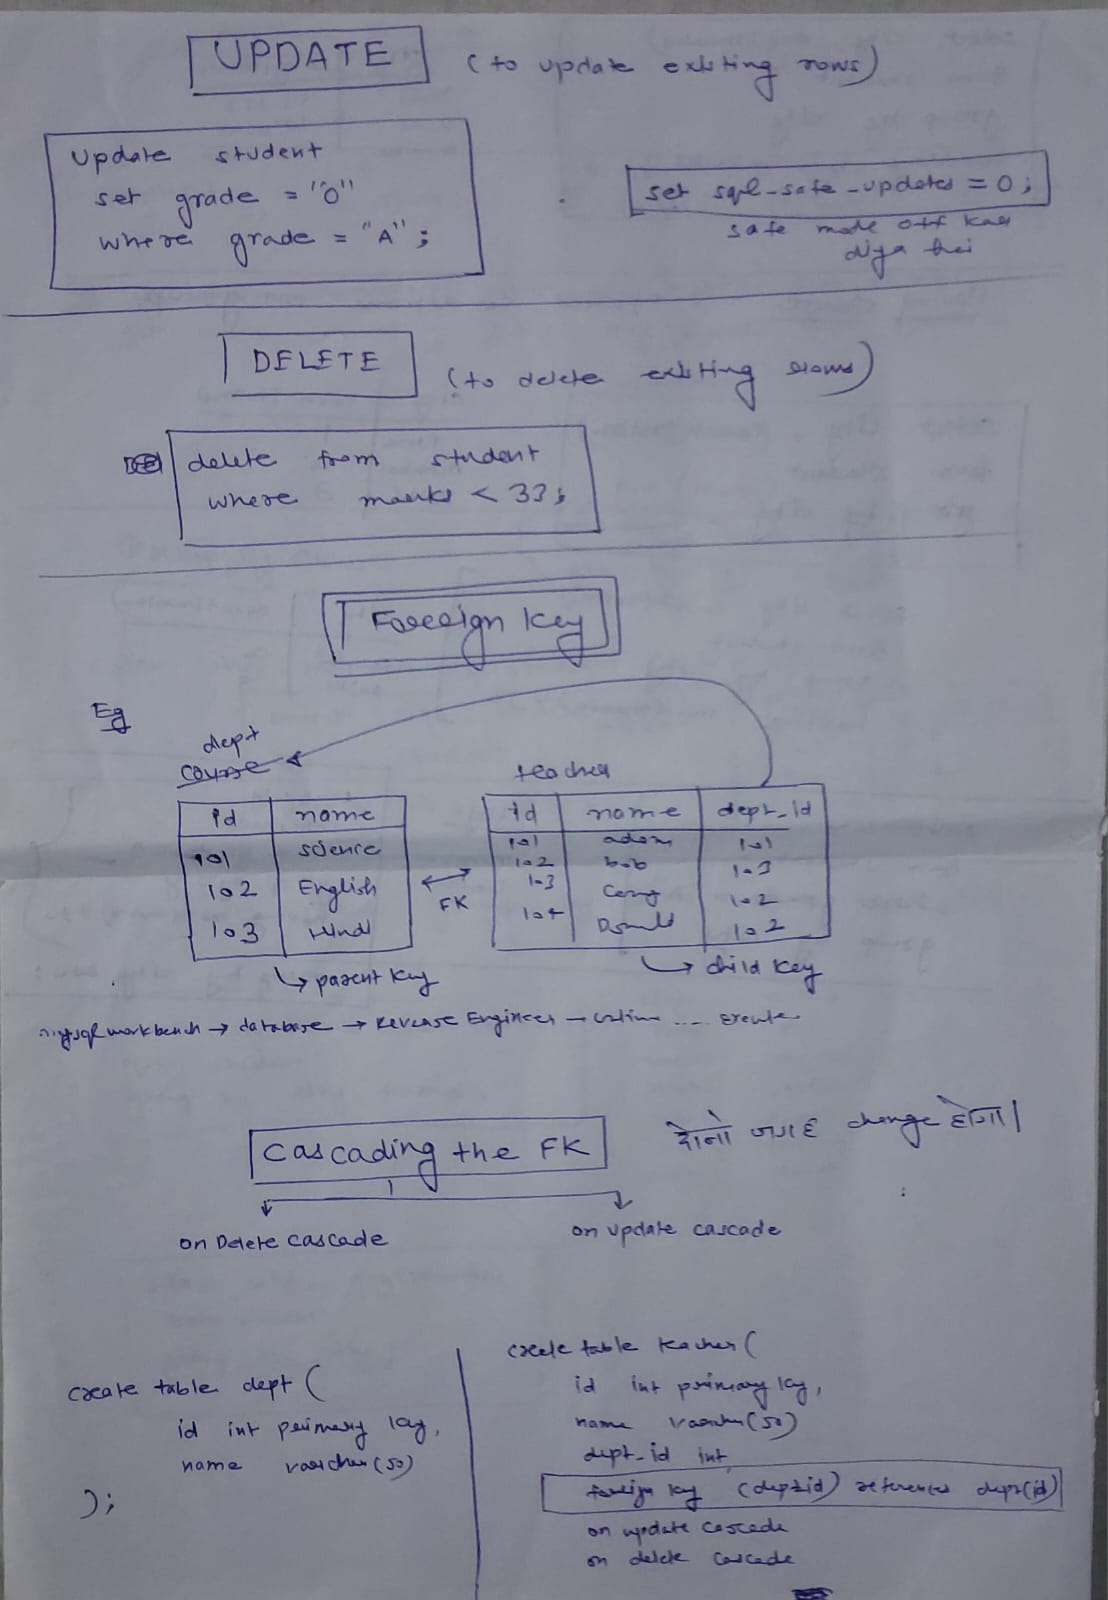 UPDATE (to update existing rows)
Update student
set grade = "O"
where grade = "A";
set sql_safe_updates = 0;
safe mode off kar
diya hai
DELETE (to delete existing rows)
delete from student
where marks < 33;
Foreign key
Eg
dept
course
teacher
id name
101 science
102 English
103 Hindi
FK
id name dept_id
101 adam 101
102 bob 103
103 102
104 Donald 102
parent key
child key
mysql workbench → database → Reverse Engineer → .... execute
Cascading the FK
दोनो जगह change होगा।
on Delete cascade
on update cascade
create table dept (
id int primary key,
name varchar(50)
);
create table teacher (
id int primary key,
name varchar(50)
dept_id int,
foreign key (dept_id) references dept(id)
on update cascade
on delete cascade